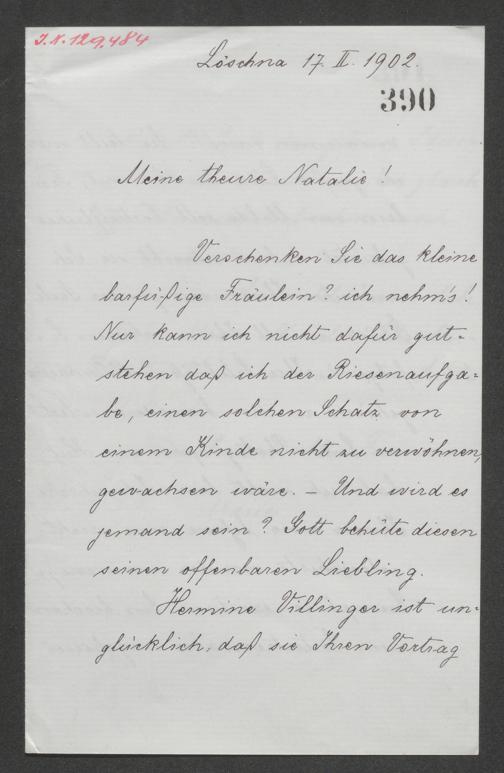 J.N. 129.484
Löschna 17. II. 1902.
390
Meine theure Natalie!
Verschenken Sie das kleine
barfüßige Fräulein? ich nehm's!
Nur kann ich nicht dafür gut-
stehen daß ich der Riesenaufga-
be, einen solchen Schatz von
einem Kinde nicht zu verwöhnen,
gewachsen wäre. – Und wird es
jemand sein? Gott behüte diesen
seinen offenbaren Liebling.
Hermine Villinger ist un-
glücklich, daß sie Ihren Vortrag